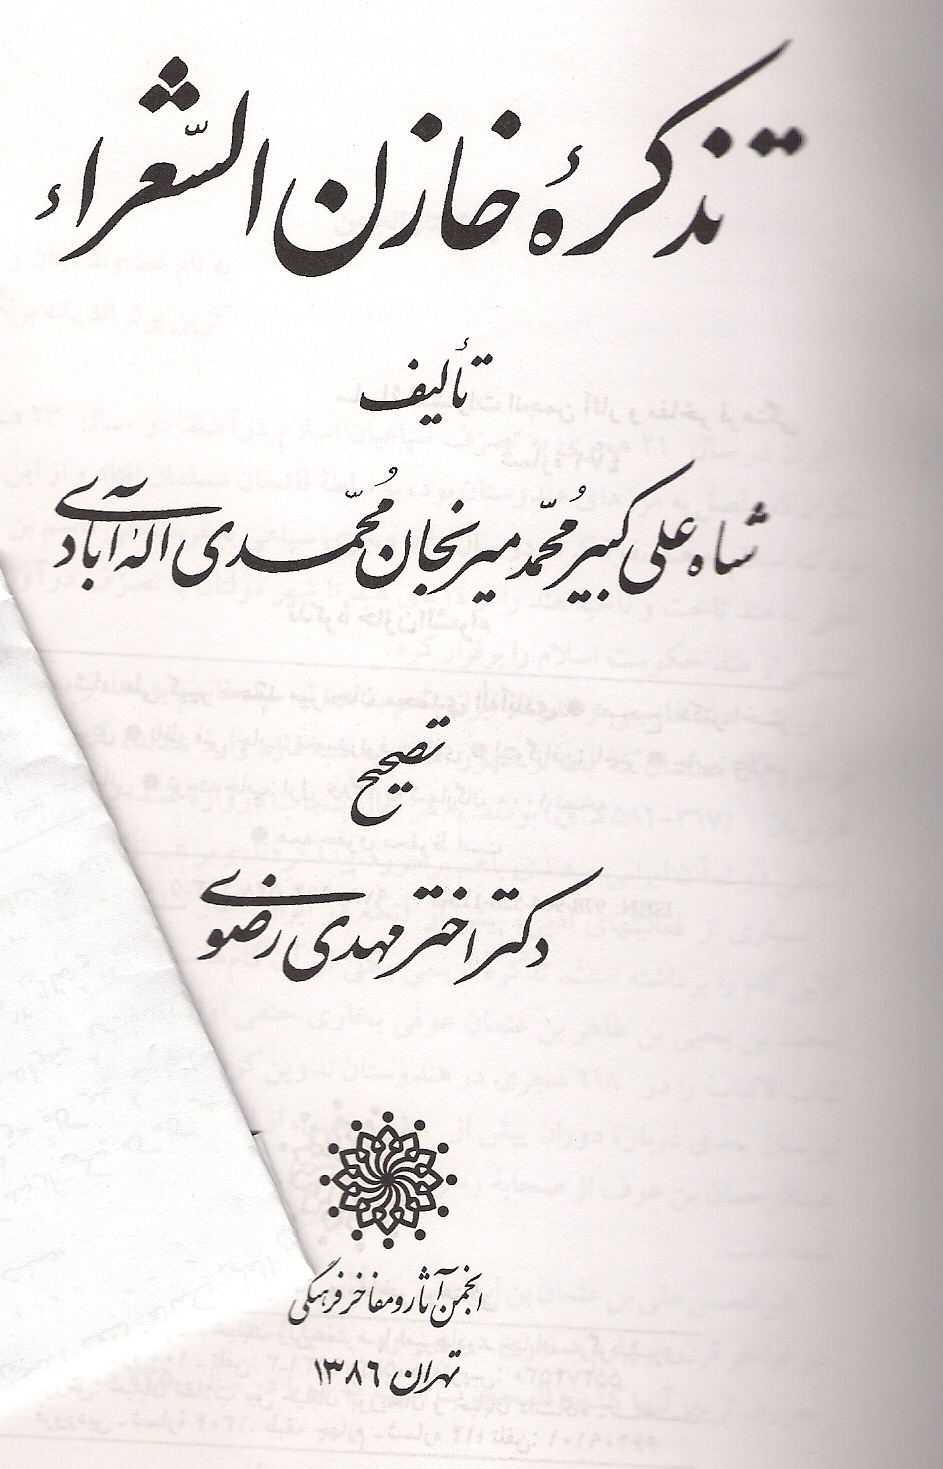 تذکرهٔ خازن الشّعراء
تألیف
شاه علی کبیر مُحمّد میرنجان مُحمّدی اله‌آبادی
تصحیح
دکتر اختر مهدی رضوی
انجمن آثار و مفاخر فرهنگی
تهران ۱۳۸۶